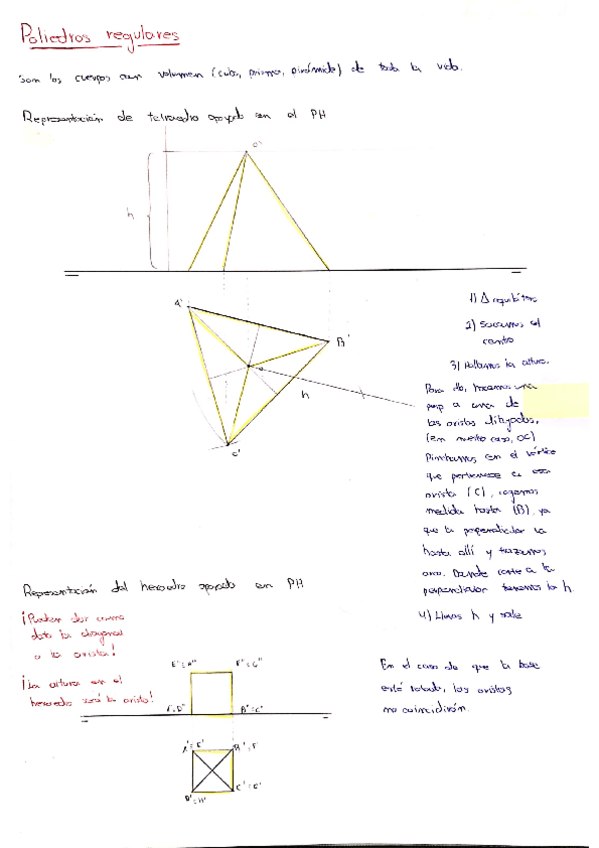 Poliedros regulares
Son los cuerpos con volumen (cubo, prisma, pirámide) de toda la vida.
Representación de tetraedro apoyado en el PH
O''
h
A'
B'
h
C'
1) Δ equilátero
2) Sacamos el
centro
3) Hallamos la altura.
Para ello, hacemos una
perp a una de
las aristas dibujadas,
(en nuestro caso, OC)
Pinchamos en el vértice
que pertenece a esa
arista (C), cogemos
medida hasta (B), ya
que la perpendicular va
hasta allí y trazamos
arco. Donde corte a la
perpendicular tenemos la h.
4) Llevas h y sale
Representación del hexaedro apoyado en PH
¡Pueden dar como
dato la diagonal
o la arista!
¡La altura en el
hexaedro será la arista!
B'' = C''
A' = E'
C' = G'
D' = H'
En el caso de que la base
esté rotada, las aristas
no coincidirán.